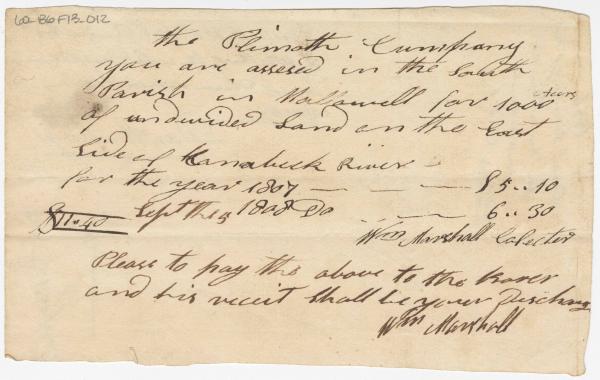 60-86F13-012
the Plimoth Cumpany
you are assesed in the South
Parish in Hallowell for 1000 Acers
of undivided Land on the East
Side of Kanabeck River
for the year 1807 — — — $5..10
Sept the 5 1808 Do — — 6..30
$11.40
Wm Marshall Colecter
Please to pay the above to the barer
and his receit Shall be your Discharg
Wm Marshall